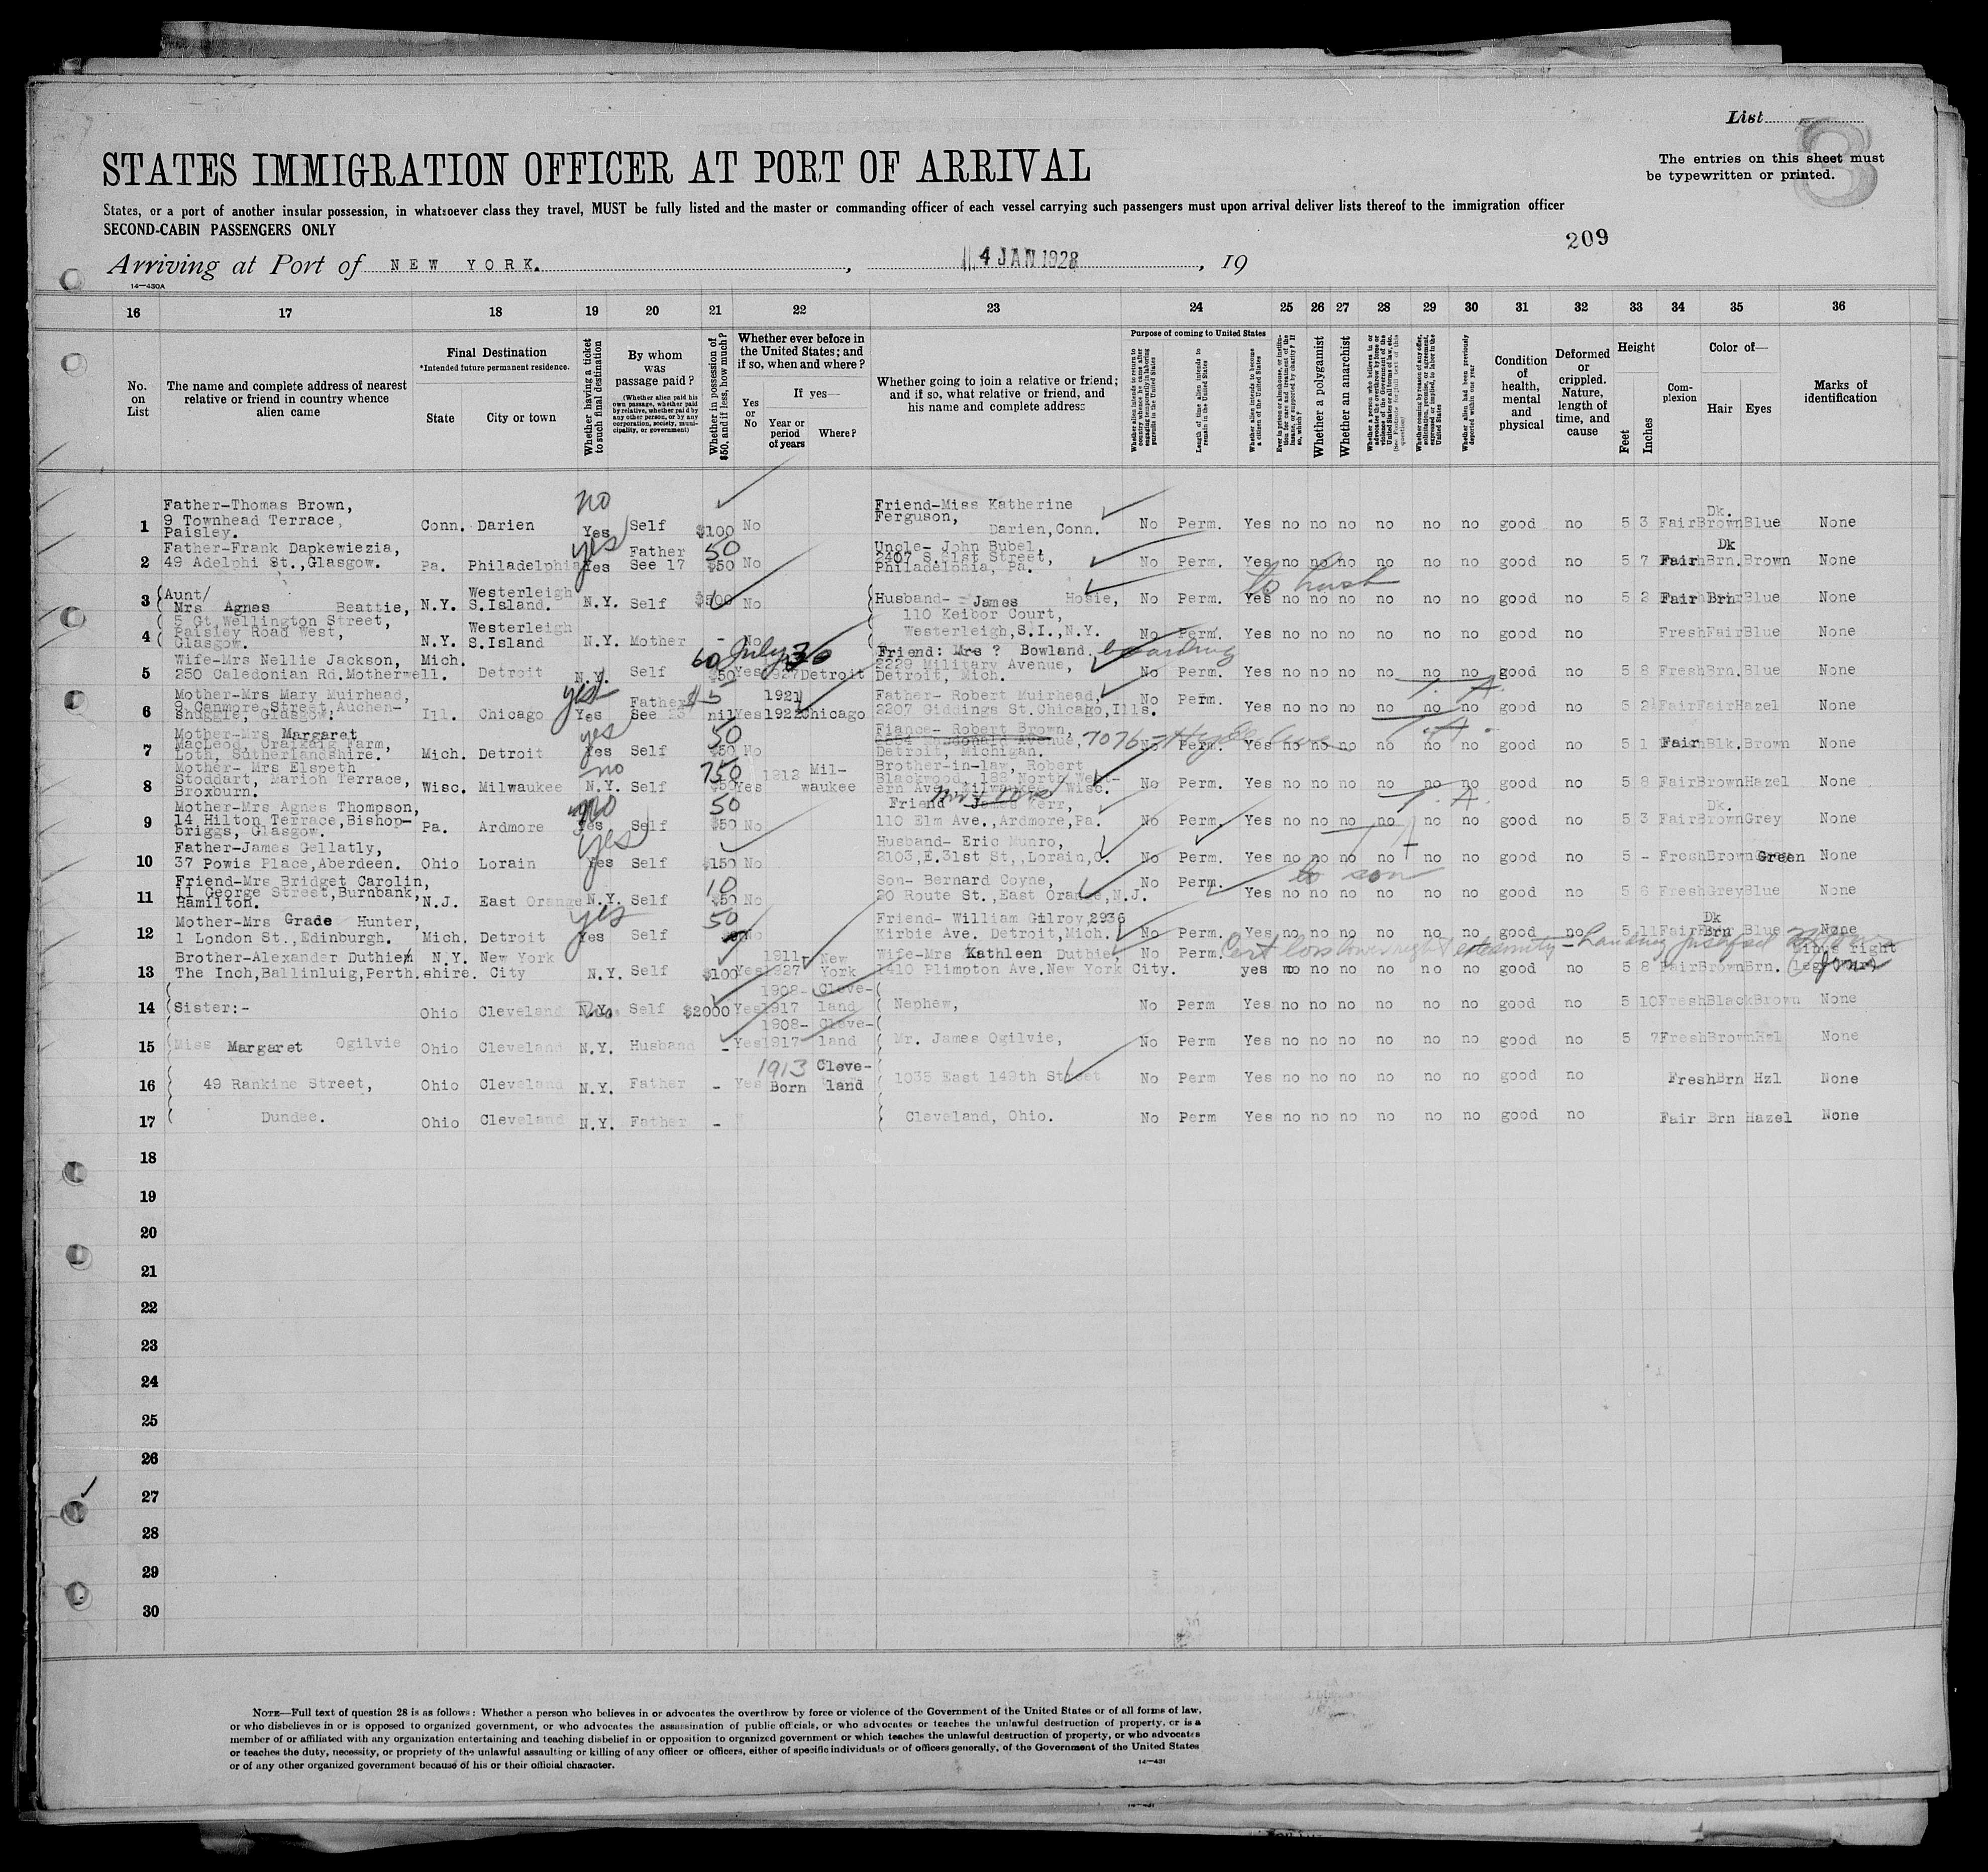 List
3
STATES IMMIGRATION OFFICER AT PORT OF ARRIVAL
The entries on this sheet must
be typewritten or printed.
States, or a port of another insular possession, in whatsoever class they travel, MUST be fully listed and the master or commanding officer of each vessel carrying such passengers must upon arrival deliver lists thereof to the immigration officer
SECOND-CABIN PASSENGERS ONLY
209
Arriving at Port of NEW YORK. , 4 JAN 1928 , 19
14—430A
16 17 18 19 20 21 22 23 24 25 26 27 28 29 30 31 32 33 34 35 36
No. on List
The name and complete address of nearest relative or friend in country whence alien came
Final Destination
*Intended future permanent residence.
State
City or town
Whether having a ticket to such final destination
By whom was passage paid?
(Whether alien paid his own passage, whether paid by relative, whether paid by any other person, or by any corporation, society, municipality, or government)
Whether in possession of $50, and if less, how much?
Whether ever before in the United States; and if so, when and where?
Yes or No
If yes—
Year or period of years
Where?
Whether going to join a relative or friend; and if so, what relative or friend, and his name and complete address
Purpose of coming to United States
Length of time alien intends to remain in the United States
Whether alien intends to become a citizen of the United States
Whether a polygamist
Whether an anarchist
Whether alien had been previously deported within one year
Condition of health, mental and physical
Deformed or crippled. Nature, length of time, and cause
Height
Feet
Inches
Complexion
Color of—
Hair
Eyes
Marks of identification
1 Father-Thomas Brown, 9 Townhead Terrace, Paisley. Conn. Darien no Yes Self $100 No Friend-Miss Katherine Ferguson, Darien,Conn. No Perm. Yes no no no no no no good no 5 3 Fair Dk. Brown Blue None
2 Father-Frank Dapkewiezia, 49 Adelphi St.,Glasgow. Pa. Philadelphia yes Yes Father See 17 50 $50 No Uncle- John Bubel, 2407 S.21st Street, Philadelphia, Pa. No Perm. Yes no no no no no no good no 5 7 Fair Dk Brn. Brown None
3 Aunt/ Mrs Agnes Beattie, N.Y. Westerleigh S.Island. N.Y. Self $500 No Husband- James Hosie, No Perm. to husb Yes no no no no no no good no 5 2 Fair Brn Blue None
4 5 Gt.Wellington Street, Paisley Road West, Glasgow. N.Y. Westerleigh S.Island N.Y. Mother - No 110 Keibor Court, Westerleigh,S.I.,N.Y. No Perm. Yes no no no no no no good no Fresh Fair Blue None
5 Wife-Mrs Nellie Jackson, 250 Caledonian Rd.Motherwell. Mich. Detroit N.Y. Self 60 $50 Yes July 1927 Detroit Friend: Mrs ? Bowland. boarding 2229 Military Avenue, Detroit, Mich. No Perm. Yes no no no no no no good no 5 8 Fresh Brn. Blue None
6 Mother-Mrs Mary Muirhead, 9 Canmore Street,Auchenshuggle, Glasgow. Ill. Chicago yes Yes Father See 23 $5 nil Yes 1921 1922 Chicago Father- Robert Muirhead, 2207 Giddings St.Chicago,Ills. No Perm. T. A. Yes no no no no no no good no 5 2½ Fair Fair Hazel None
7 Mother-Mrs Margaret MacLeod, Craikaig Farm, Loth, Sutherlandshire. Mich. Detroit yes Yes Self 50 $50 No Fiance- Robert Brown, 7076 Detroit, Michigan. No Perm. T.A. Yes no no no no no no good no 5 1 Fair Blk. Brown None
8 Mother- Mrs Elspeth Stoddart, Marion Terrace, Broxburn. Wisc. Milwaukee no N.Y. Self 750 $50 Yes 1912 Milwaukee Brother-in-law, Robert Blackwood, 188 North Western Ave. Milwaukee, Wisc. No Perm. Yes no no no no no no good no 5 8 Fair Brown Hazel None
9 Mother-Mrs Agnes Thompson, 14 Hilton Terrace,Bishopbriggs, Glasgow. Pa. Ardmore no Yes Self 50 $50 No Friend James Kerr, 110 Elm Ave.,Ardmore,Pa. No Perm. T. A. Yes no no no no no no good no 5 3 Fair Dk. Brown Grey None
10 Father-James Gellatly, 37 Powis Place,Aberdeen. Ohio Lorain Yes Yes Self $150 No Husband- Eric Munro, 2103,E.31st St,,Lorain,O. No Perm. Yes no no no no no no good no 5 - Fresh Brown Green None
11 Friend-Mrs Bridget Carolin, 11 George Street,Burnbank, Hamilton. N.J. East Orange N.Y. Self 10 $50 No Son- Bernard Coyne, 20 Route St.,East Orange,N.J. No Perm. to son Yes no no no no no no good no 5 6 Fresh Grey Blue None
12 Mother-Mrs Grade Hunter, 1 London St.,Edinburgh. Mich. Detroit yes Yes Self 50 No Friend- William Gilroy,2936 Kirbie Ave. Detroit,Mich. No Perm. Yes no no no no no no good no 5 11 Fair Dk Brn Blue None
13 Brother-Alexander Duthie, The Inch,Ballinluig,Perthshire. N.Y. New York City N.Y. Self $100 Yes 1911 1927 New York Wife-Mrs Kathleen Duthie, 1410 Plimpton Ave.New York City. No Perm. Cert loss lower right extremity - Landing yes no no no no no no good no 5 8 Fair Brown Brn. right leg
14 Sister:- Ohio Cleveland N.Y. Self $2000 Yes 1908-1917 Cleveland Nephew, No Perm Yes no no no no no no good no 5 10 Fresh Black Brown None
15 Miss Margaret Ogilvie Ohio Cleveland N.Y. Husband - Yes 1908-1917 Cleveland Mr. James Ogilvie, No Perm Yes no no no no no no good no 5 7 Fresh Brown Hzl None
16 49 Rankine Street, Ohio Cleveland N.Y. Father - Yes 1913 Born Cleveland 1035 East 149th Street No Perm Yes no no no no no no good no Fresh Brn Hzl None
17 Dundee. Ohio Cleveland N.Y. Father - Cleveland, Ohio. No Perm Yes no no no no no no good no Fair Brn Hazel None
18
19
20
21
22
23
24
25
26
27
28
29
30
NOTE—Full text of question 28 is as follows: Whether a person who believes in or advocates the overthrow by force or violence of the Government of the United States or of all forms of law,
or who disbelieves in or is opposed to organized government, or who advocates the assassination of public officials, or who advocates or teaches the unlawful destruction of property, or is a
member of or affiliated with any organization entertaining and teaching disbelief in or opposition to organized government or which teaches the unlawful destruction of property, or who advocates
or teaches the duty, necessity, or propriety of the unlawful assaulting or killing of any officer or officers, either of specific individuals or of officers generally, of the Government of the United States
or of any other organized government because of his or their official character.
14—431